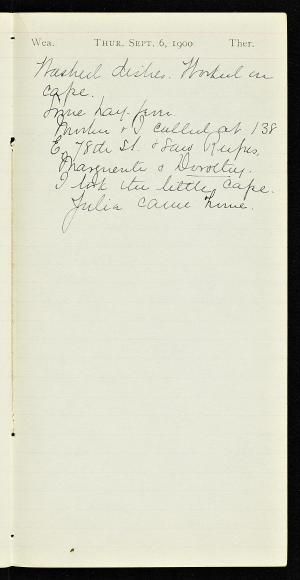 Wea. THUR. SEPT. 6, 1900 Ther.
Washed dishes. Worked on
cape.
Fine day.
Mother & I called at 138
E. 78th St. & saw Rufus,
Marguerite & Dorothy.
I took the little cape.
Julia came home.